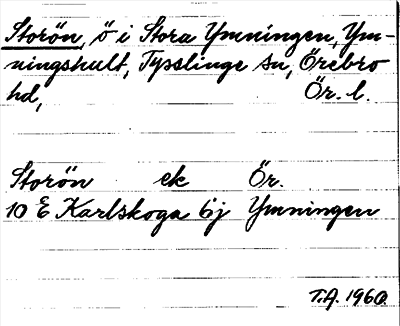 Storön, ö i Stora Ymningen, Ym-
ningshult, Tysslinge sn, Örebro
hd, Ör. l.
Storön ek Ör.
10 E Karlskoga 6j Ymningen
T.A. 1960